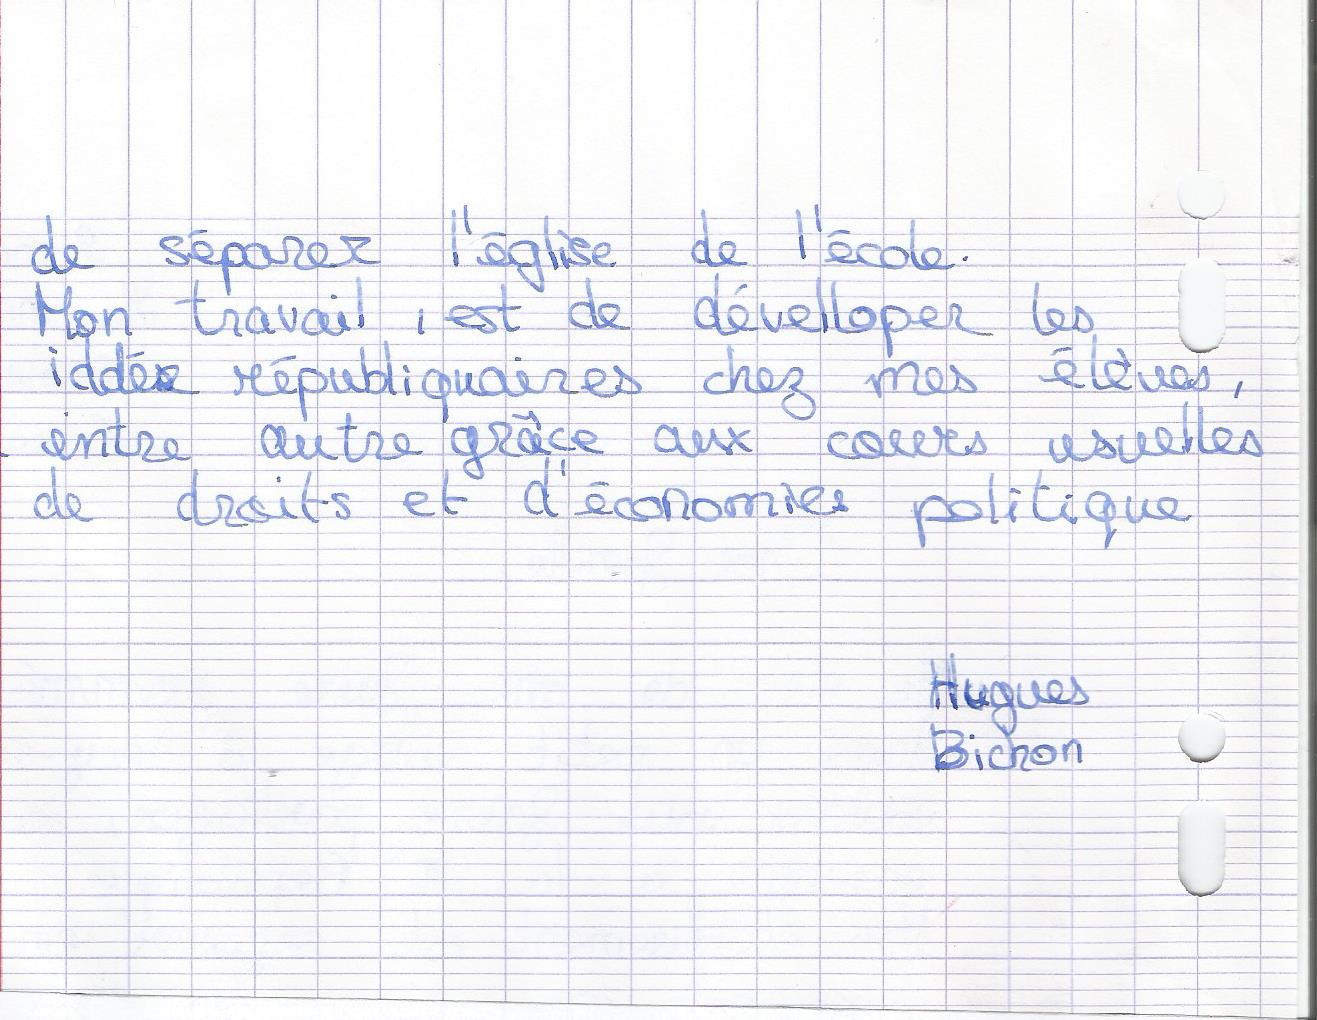 de séparer l'église de l'école.
Mon travail, est de développer les
iddée républiquaires chez mes élèves,
entre autre grâce aux cours usuelles
de droits et d'économies politique
Hugues
Bichon